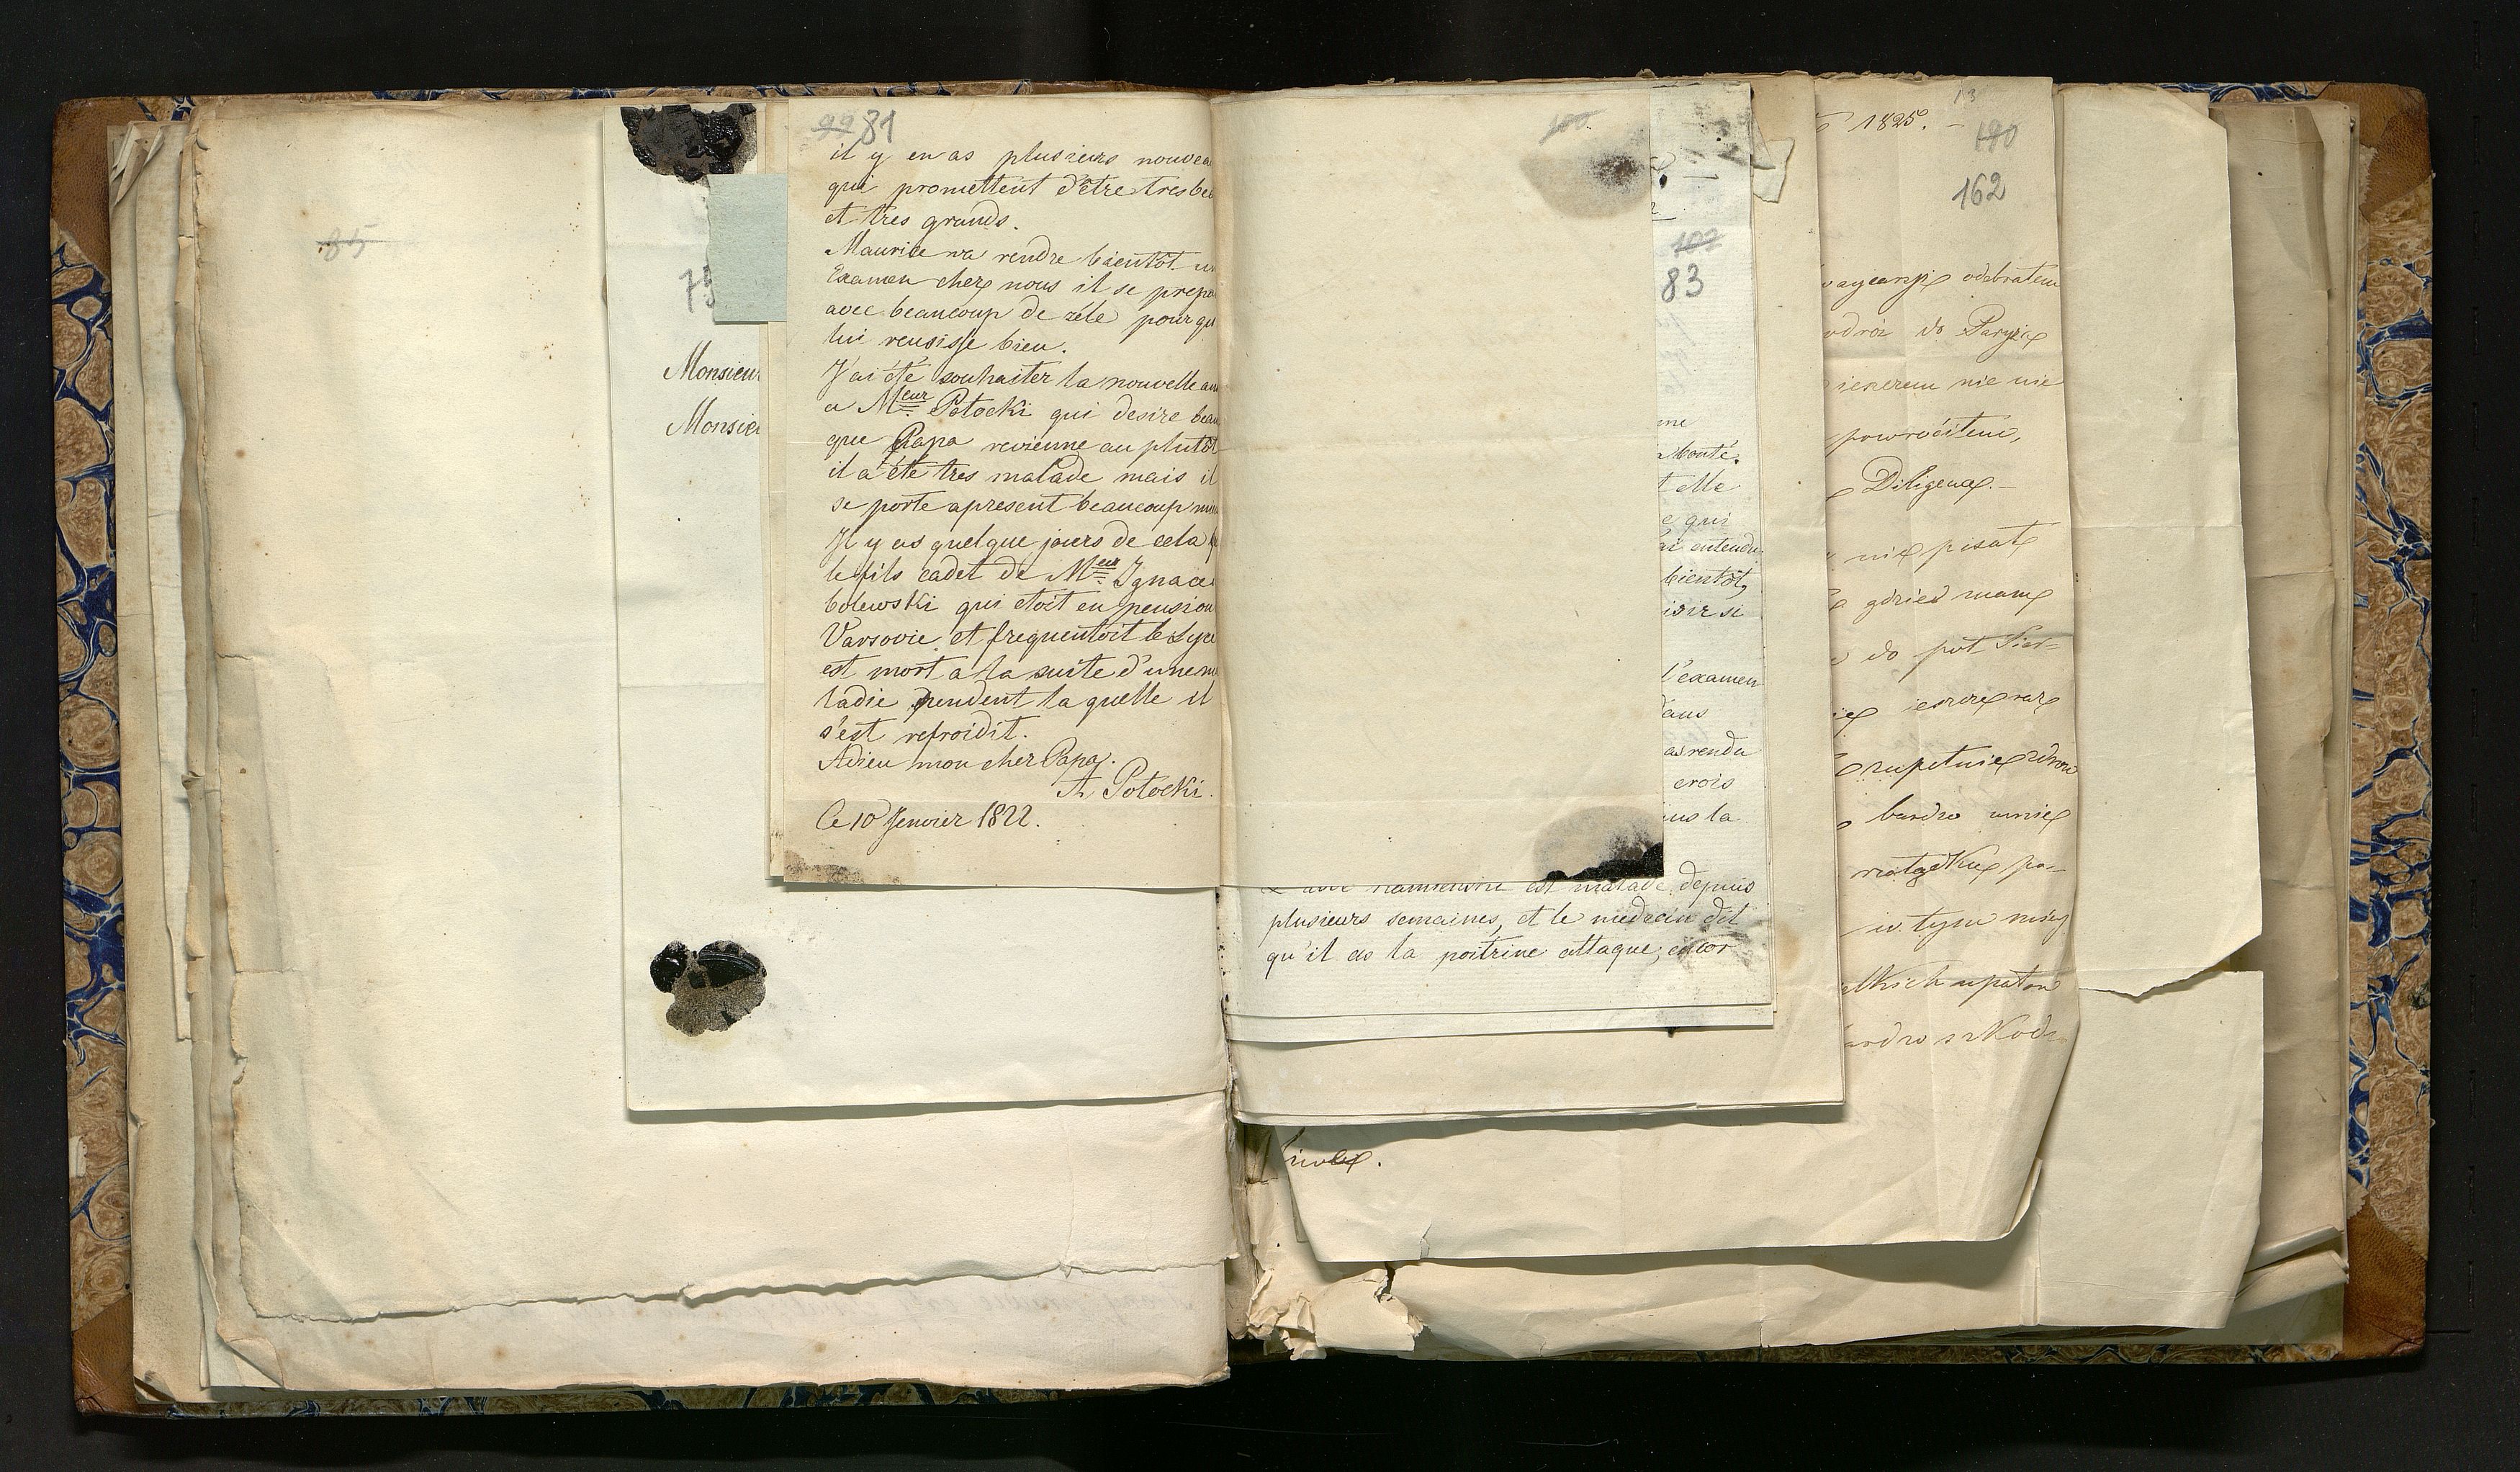 85
75
Monsieur
Monsieu
99 81
il y en as plusieurs nouvea
qui promettent d'être tres be
et tres grands.
Maurice va rendre bientôt un
Examen chez nous il se prepa
avec beaucoup de zéle pour qu
lui reusisse bien.
J'ai été souhaiter la nouvelle an
a Meur Potocki qui desire beau
que Papa revienne au plutôt
il a été tres malade mais il
se porte apresent beaucoup mi
Il y as quelque jours de cela
le fils cadet de Meur Ignace
bolewski qui etoit en pension
Varsovie et frequentoit le Lyce
est mort a la suite d'une m
ladie pendent la quelle il
s'est refroidit.
Adieu mon cher Papa.
A. Potocki.
Ce 10 Jenvier 1822.
100.
102
83
me
Bonté.
t elle
e qui
ai entendu
bientôt,
isir si
l'examen
dans
as rendu
crois
us la
est malade depuis
plusieurs semaines, et le medecin dit
qu'il as la poitrine attaque, encor
13
1825. –
180
162
odebrałem
do Paryża
nic nie
powróciłem,
Diligencę.–
nie pisał
gdzieś mamy
do pół
jeszcze raz
zupełnie zdrow
bardzo
w tym